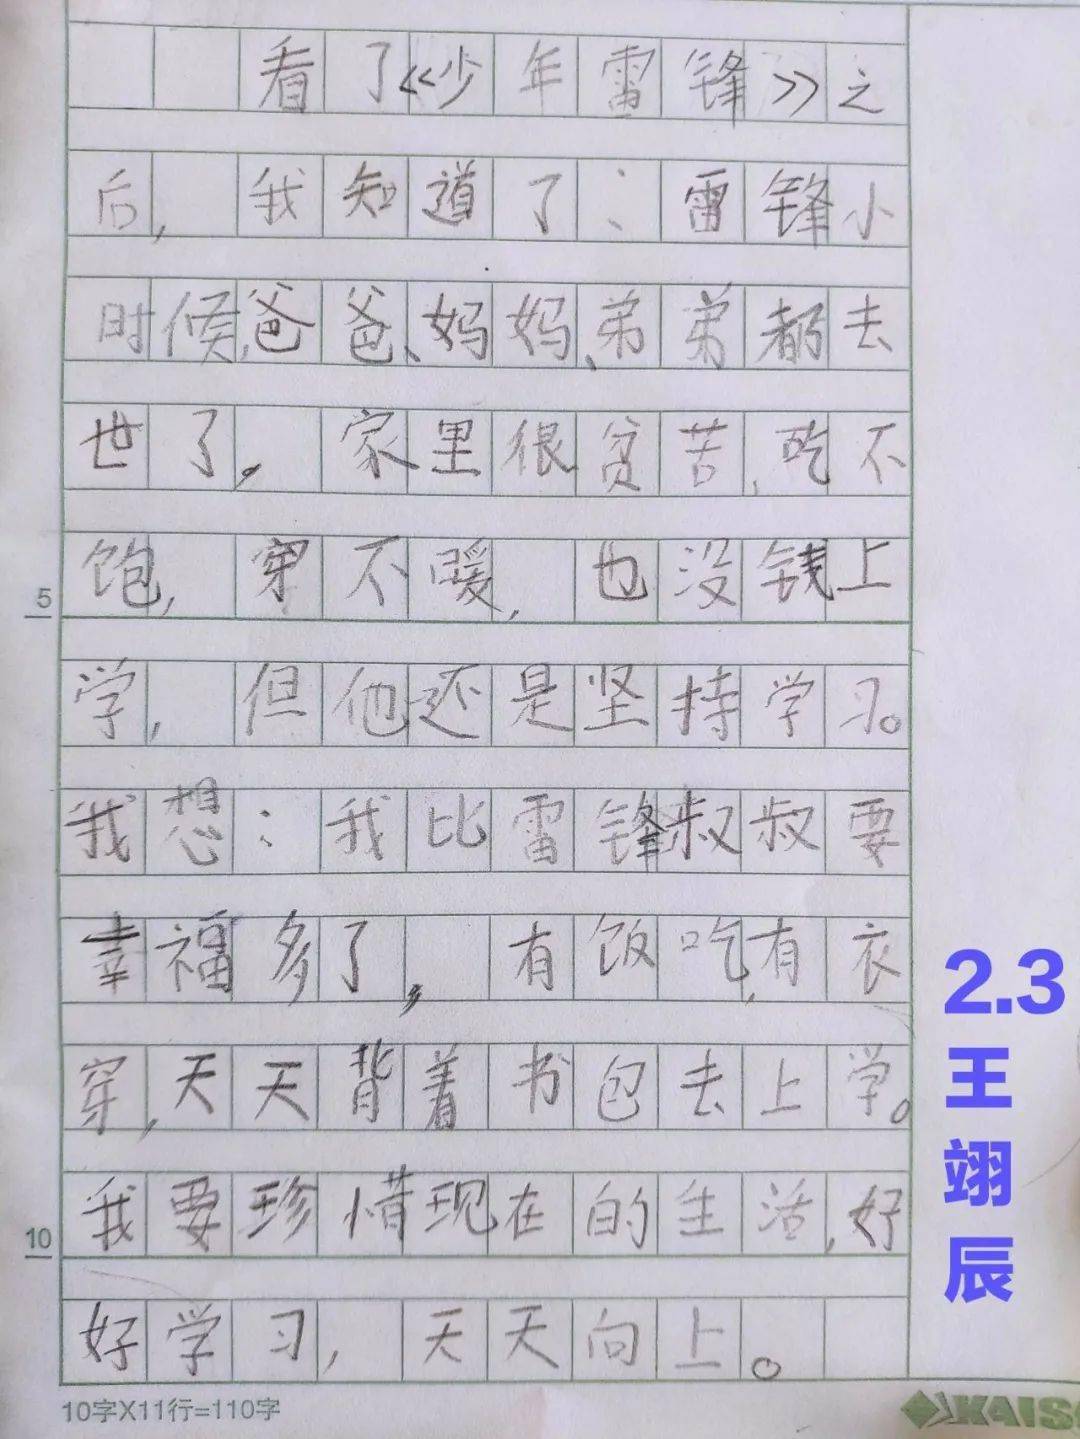 看了《少年雷锋》之
后，我知道了：雷锋小
时候，爸爸、妈妈、弟弟都去
世了。家里很贫苦，吃不
饱，穿不暖，也没钱上
学，但他还是坚持学习。
我想：我比雷锋叔叔要
幸福多了，有饭吃，有衣
穿，天天背着书包去上学。
我要珍惜现在的生活，好
好学习，天天向上。
5
10
10字X11行=110字
2.3
王翊辰